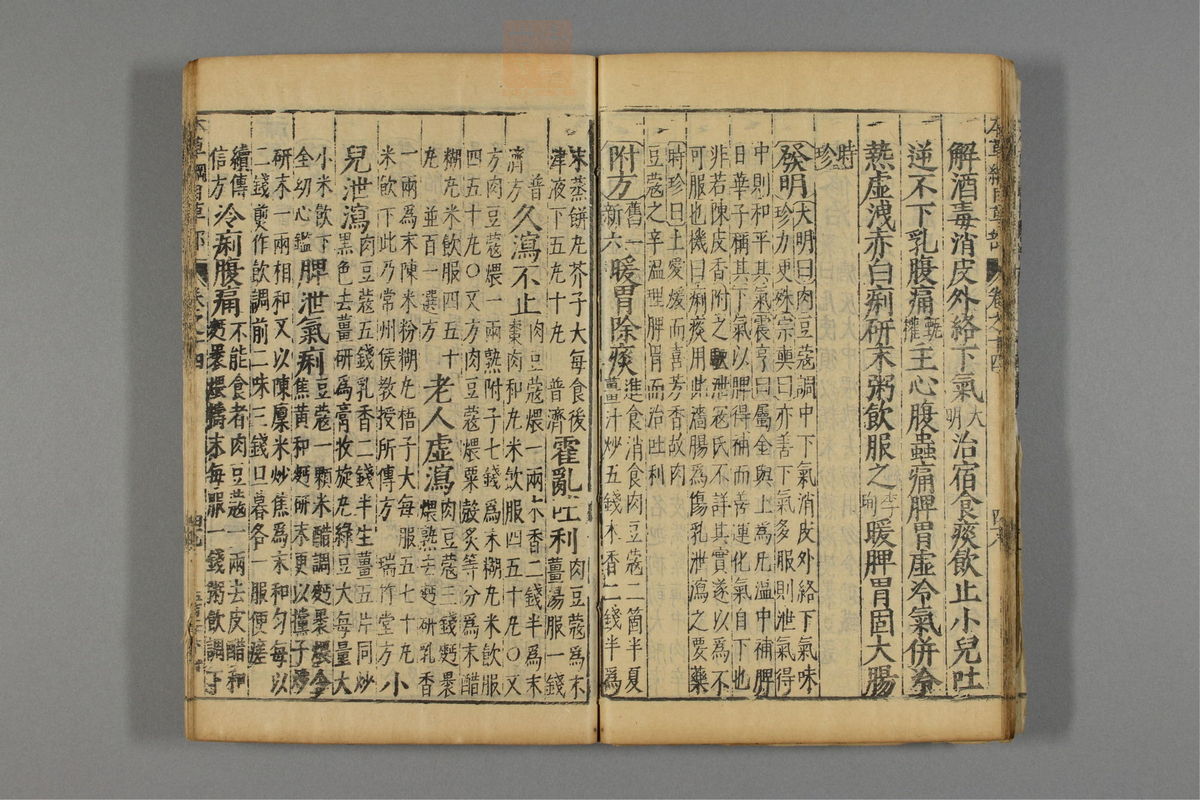 解酒毒消皮外絡下氣大明治宿食痰飲止小兒吐
逆不下乳腹痛甄權主心腹蟲痛脾胃虛冷氣併冷
熱虛洩赤白痢研末粥飲服之李珣暖脾胃固大腸
時珍
發明大明曰肉豆蔻調中下氣消皮外絡下氣味
珍力更殊宗奭曰亦善下氣多服則泄氣得
中則和平其氣震亨曰屬金與土為丸溫中補脾
日華子稱其下氣以脾得補而善運化氣自下也
非若陳皮香附之駃泄寇氏不詳其實遂以為不
可服也機曰痢疾用此濇腸為傷乳泄瀉之要藥
時珍曰土愛煖而喜芳香故肉
豆蔻之辛溫理脾胃而治吐利
附方舊一新六暖胃除痰進食消食肉豆蔻二箇半夏
薑汁炒五錢木香二錢半為
末蒸餅丸芥子大每食後
津液下五丸十丸 普濟霍亂吐利肉豆蔻為末
薑湯服一錢
普濟方久瀉不止肉豆蔻煨一兩木香二錢半為末
棗肉和丸米飲服四五十丸〇又
方肉豆蔻煨一兩熟附子七錢為末糊丸米飲服
四五十丸〇又方肉豆蔻煨粟殼炙等分為末醋
糊丸米飲服四五
丸 並百一選方 老人虛瀉肉豆蔻三錢麪裹
煨熟去麪研乳香
一兩為末陳米粉糊丸梧子大每服五七十丸
米飲下此乃常州侯教授所傳方 瑞竹堂方 小
兒泄瀉肉豆蔻五錢乳香二錢半生薑五片同炒
黑色去薑研為膏收旋丸綠豆大每量大
小米飲下
全幼心鑑 脾泄氣痢豆蔻一顆米醋調麪裹煨令
焦黃和麪研末更以欓子炒
研末一兩相和又以陳廩米炒焦為末和勻每以
二錢煎作飲調前二味三錢旦暮各一服便瘥
續傳信方 冷痢腹痛不能食者肉豆蔻一兩去皮醋和
麪裹煨擣末每服一錢粥飲調下